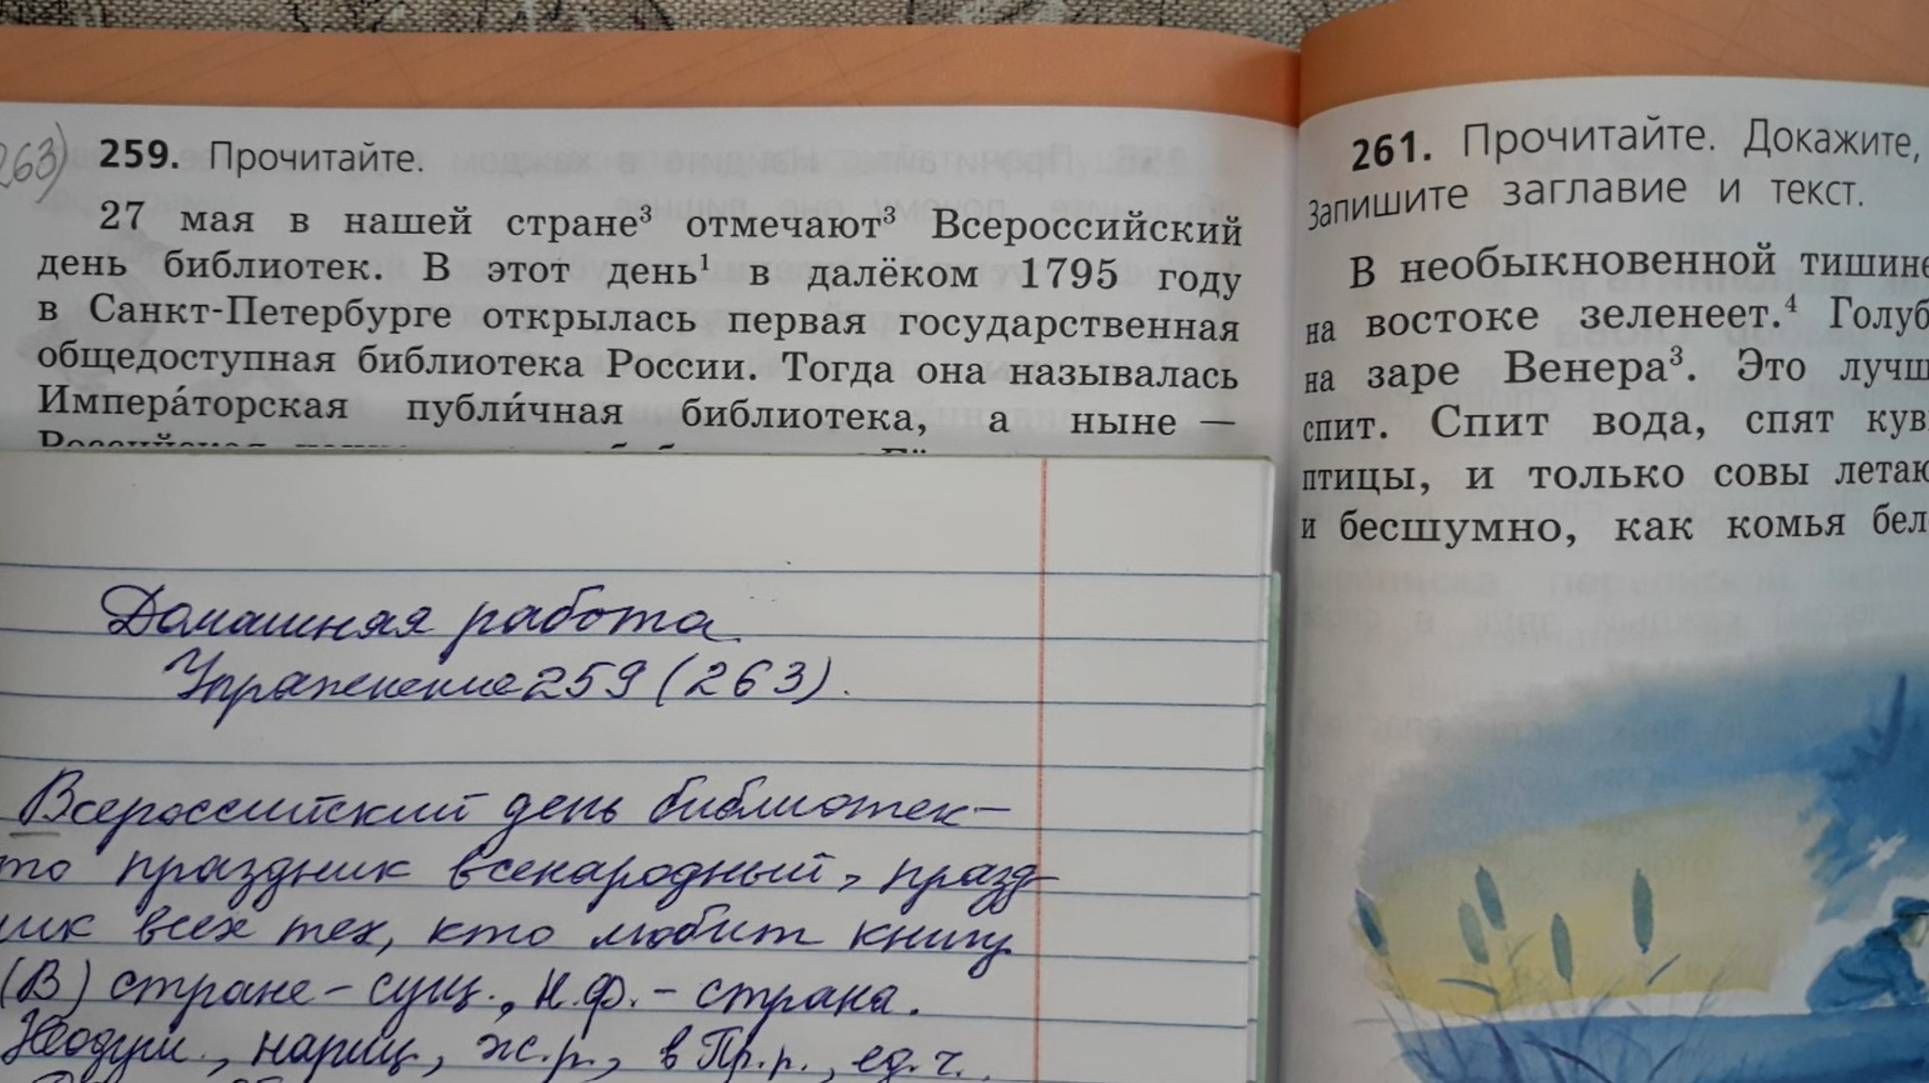 263)
259. Прочитайте.
27 мая в нашей стране³ отмечают³ Всероссийский
день библиотек. В этот день¹ в далёком 1795 году
в Санкт-Петербурге открылась первая государственная
общедоступная библиотека России. Тогда она называлась
Импера́торская публи́чная библиотека, а ныне —
Домашняя работа
Упражнение 259 (263).
Всероссийский день библиотек –
то праздник всенародный, празд-
ник всех тех, кто любит книгу
(В) стране – сущ., н.ф. – страна.
Неодуш., нариц, ж.р., в Пр.п., ед.ч.
261. Прочитайте. Докажите,
Запишите заглавие и текст.
В необыкновенной тишине
на востоке зеленеет.⁴ Голуб
на заре Венера³. Это лучш
спит. Спит вода, спят кув
птицы, и только совы летаю
и бесшумно, как комья бел